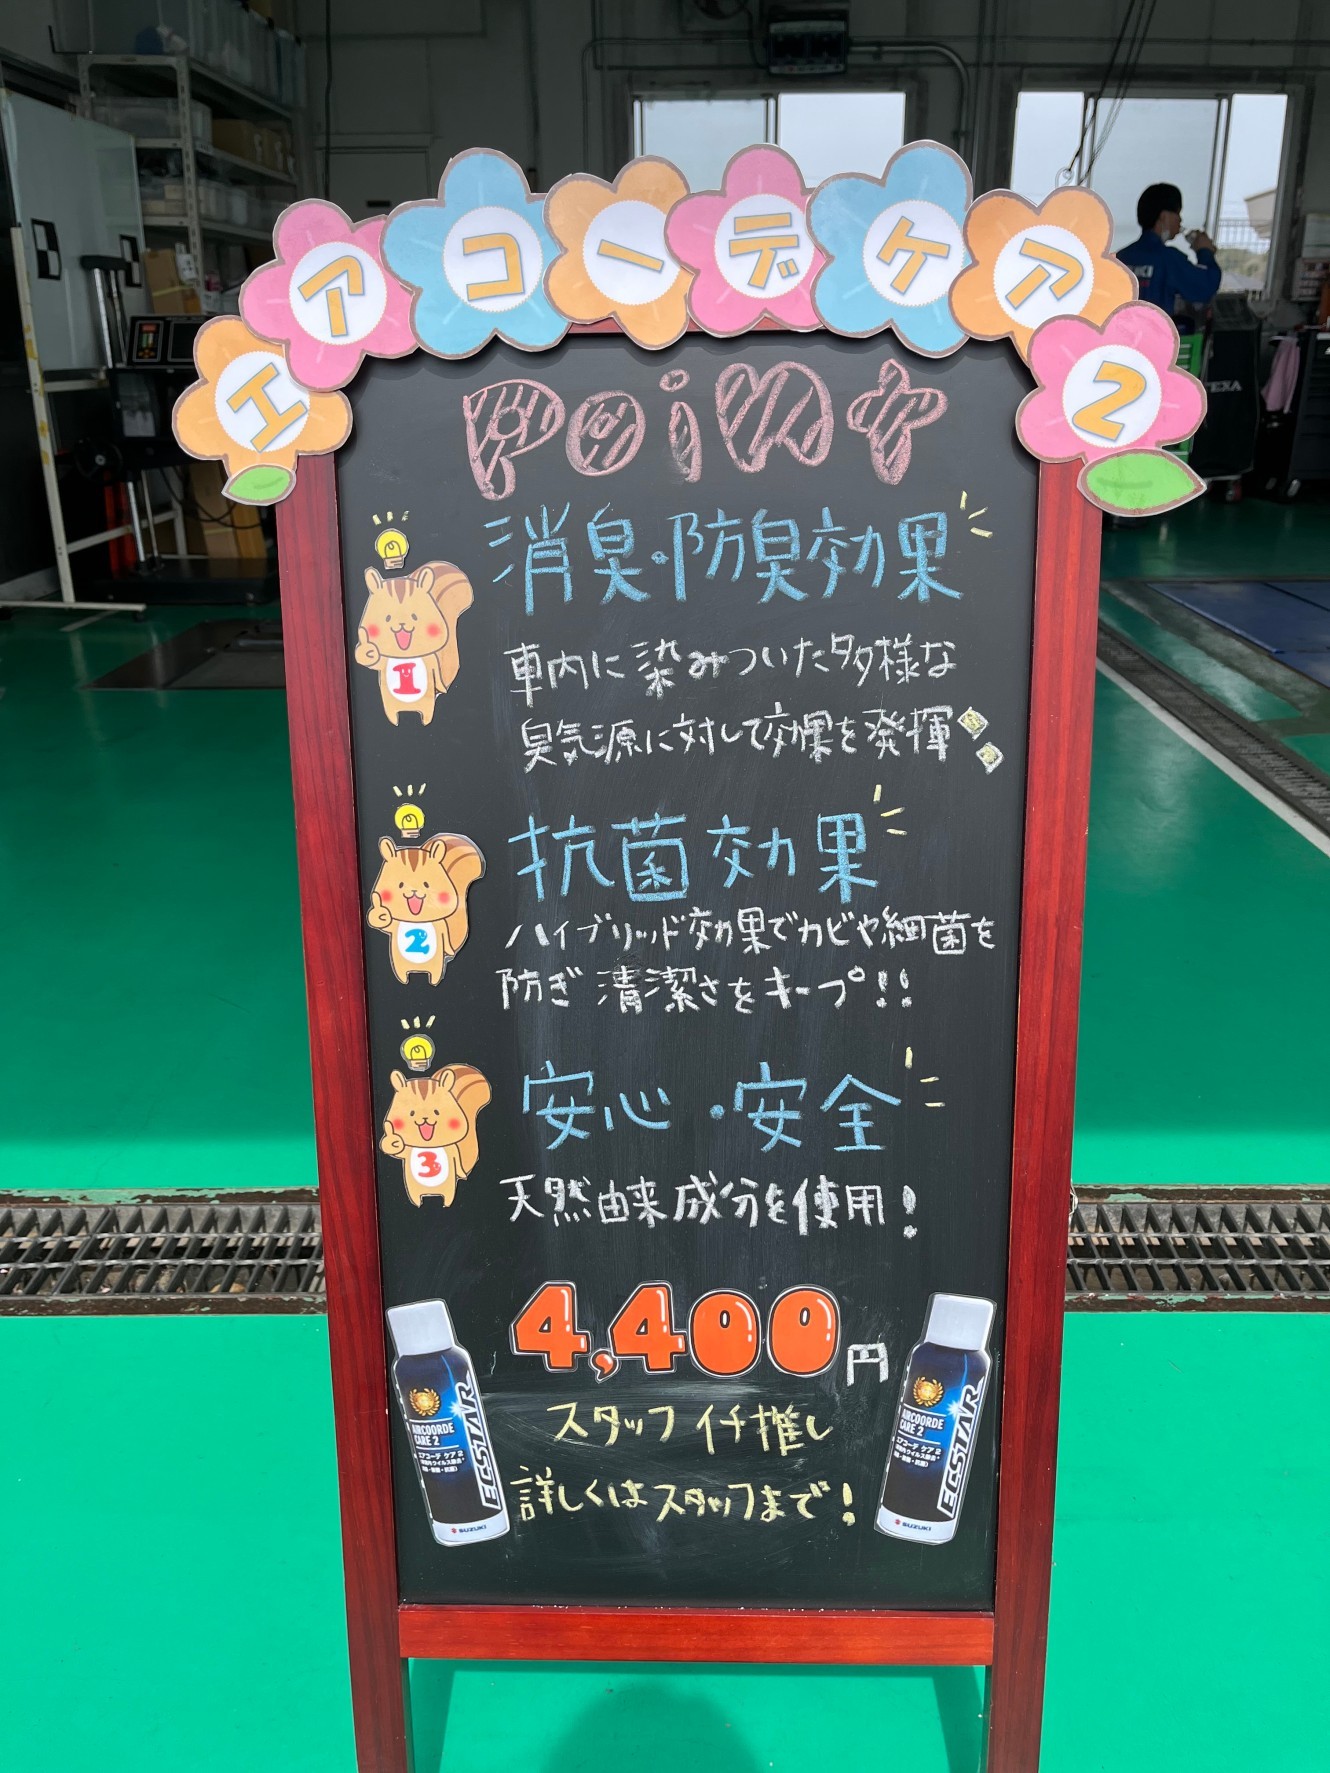 エアコーデケア2
Point
消臭・防臭効果
1
車内に染みついた多様な
臭気源に対して効果を発揮
抗菌効果
2
ハイブリッド効果でカビや細菌を
防ぎ清潔さをキープ!!
安心・安全
3
天然由来成分を使用!
4,400円
スタッフイチ推し
詳しくはスタッフまで!
AIRCOORDE
CARE 2
エアコーデ ケア2
ECSTAR
SUZUKI
AIRCOORDE
CARE 2
エアコーデ ケア2
ECSTAR
SUZUKI